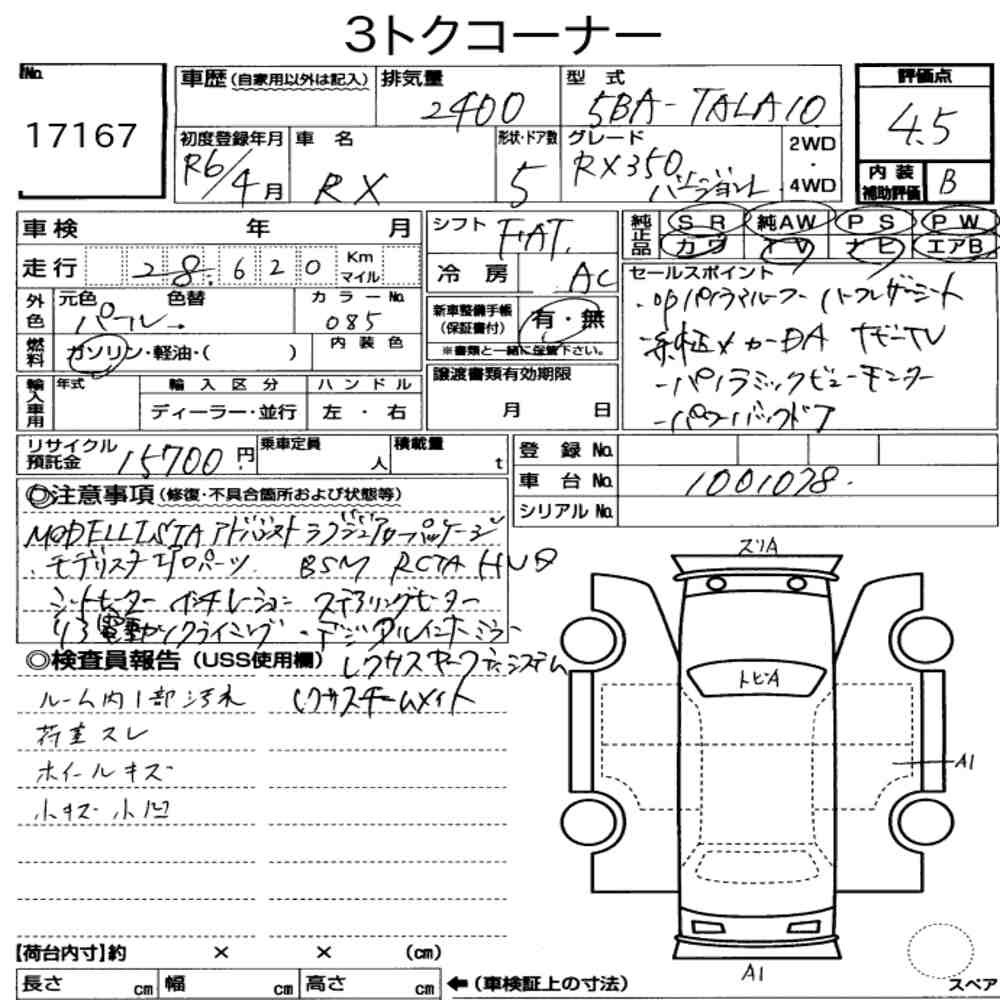 3トクコーナー
No.
17167
車歴 (自家用以外は記入)
排気量
2400
型 式
5BA-TALA10
評価点
4.5
内装補助評価 B
初度登録年月
R6/4月
車 名
RX
形状・ドア数
5
グレード
RX350
バージョンL
2WD
・
4WD
車検 年 月
走行 28,620 Km マイル
外色
元色 色替
パール
カラーNo.
085
燃料
ガソリン・軽油・( )
内装色
輸入車用
年式
輸入区分
ディーラー・並行
ハンドル
左 ・ 右
シフト FAT
冷 房 AC
新車整備手帳
(保証書付)
有・無
※書類と一緒に保管下さい。
譲渡書類有効期限
月 日
純正品
SR 純AW PS PW
カワ TV ナビ エアB
セールスポイント
・OPパノラマルーフ ・ハーフレザーシート
・純正メーカーDA ナビTV
・パノラミックビューモニター
・パワーバックドア
リサイクル預託金 15700円
乗車定員 人
積載量 t
登 録 No.
車 台 No. 1001078
シリアル No.
◎注意事項 (修復・不具合箇所および状態等)
MODELLISTA アドバンストラグジュアリーパッケージ
・モデリスタエアロパーツ BSM RCTA HUD
シートヒーター ベンチレーション ステアリングヒーター
リア電動リクライニング ・デジタルインナーミラー
◎検査員報告 (USS使用欄)
レクサスセーフティシステム
レクサスチームメイト
ルーム内1部汚れ
荷室スレ
ホイールキズ
小キズ 小凹
スリA
トビA
A1
A1
【荷台内寸】約 × × (cm)
長さ cm 幅 cm 高さ cm
←(車検証上の寸法)
スペア